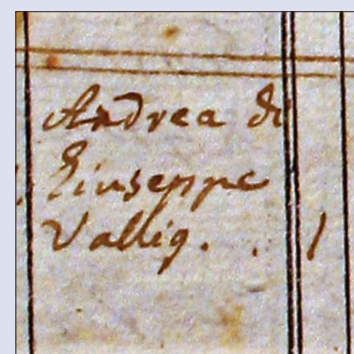 Andrea di
Giuseppe
Vallig. . 1